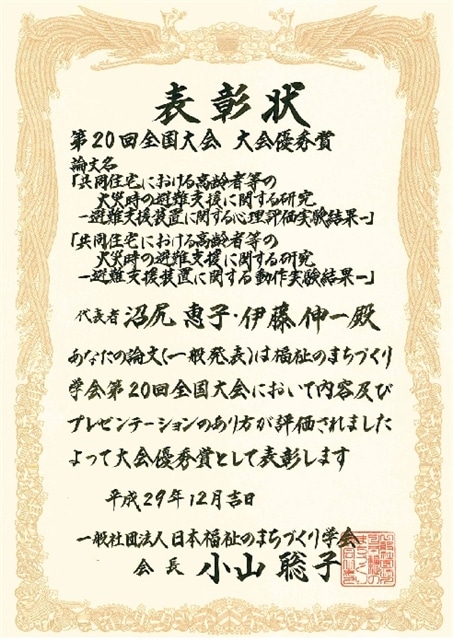 表彰状
第20回全国大会 大会優秀賞
論文名
「共同住宅における高齢者等の
火災時の避難支援に関する研究
－避難支援装置に関する心理評価実験結果－」
「共同住宅における高齢者等の
火災時の避難支援に関する研究
－避難支援装置に関する動作実験結果－」
代表者 沼尻 恵子・伊藤 伸一殿
あなたの論文(一般発表)は福祉のまちづくり
学会第20回全国大会において内容及び
プレゼンテーションのあり方が評価されました
よって大会優秀賞として表彰します
平成29年12月吉日
一般社団法人日本福祉のまちづくり学会
会長 小山 聡子